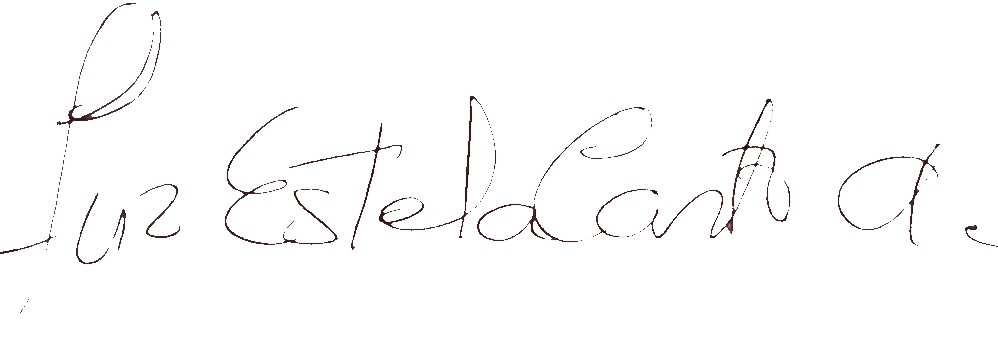 Luz Estela Canto A.